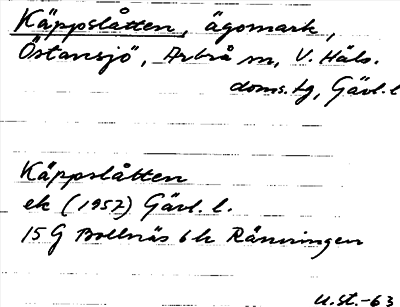 Käppslåtten, ägomark,
Östansjö, Arbrå sn, V. Häls.
doms.tg, Gävl. l
Käppslåtten
ek (1957) Gävl. l.
15 G Bollnäs 6 h Ränningen
u.st.-63